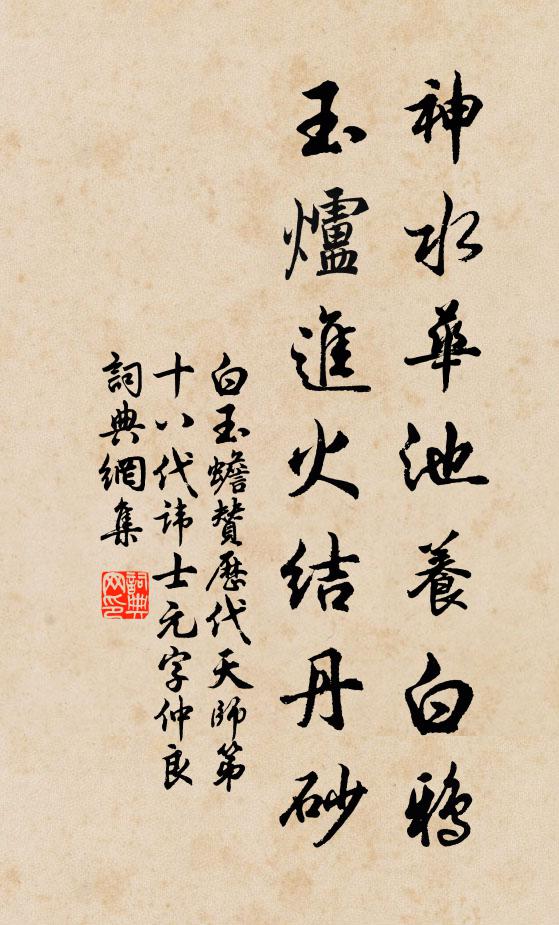 神水華池養白鴉
玉爐進火結丹砂
白玉蟾贊歷代天師第
十八代諱士元字仲良
詞典網集
詞典网印